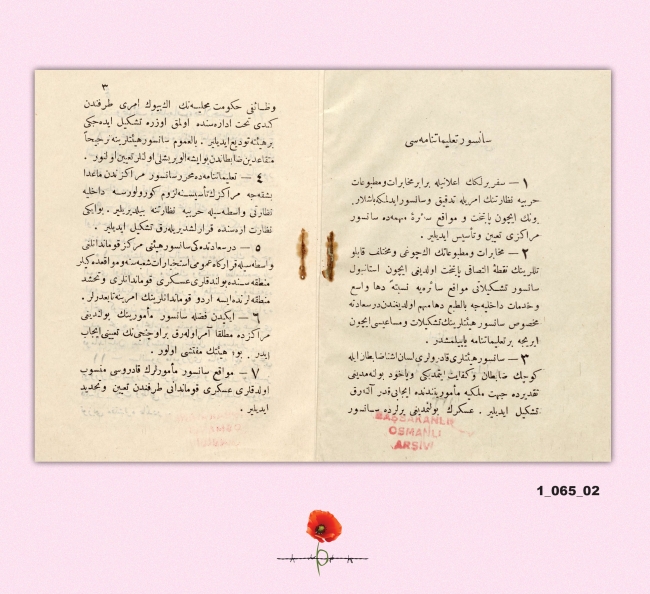 سانسور تعلیماتنامه سی
١ — سفربرلك اعلانیله برابر مخابرات ومطبوعات
حربیه نظارتنك امریله تدقیق وسانسور ایدلمكه باشلار.
بونك ایچون پایتخت و مواقع سائرۀ مهمه‌ده سانسور
مراكزی تعیین وتأسیس ایدیلیر .
٢ — مخابرات ومطبوعاتك اك چوغی ومختلف قابلو
تللرینك نقطۀ التصاقی پایتخت اولدیغی ایچون استانبول
سانسور تشكیلاتی مواقع سائره‌یه نسبةً دها واسع
وخدمات داخلیه‌جه بالطبع دها مهم اولدیغندن درسعادته
مخصوص سانسور هیئتلرینك تشكیلات ومساعیسی ایچون
آیریجه بر تعلیماتنامه یاپیلمشدر .
٣ — سانسور هیئتلری قادرولری لسان آشنا ضابطان ایله
كوچك ضابطان وكفایت ایتمدیكی ویاخود بولنمدیغی
تقدیرده جهت ملكیه مأمورینندن ایجابی قدر آلنه‌رق
تشكیل ایدیلیر . عسكرك بولنمدیغی یرلرده سانسور
BAŞBAKANLIK
OSMANLI
ARŞİVİ
٣
وظائفی حكومت محلیه‌نك اك بیوك آمری طرفندن
كندی تحت اداره‌سنده اولمق اوزره تشكیل ایده‌جكی
بر هیئته تودیع ایدیلیر . بالعموم سانسور هیئتلرینه ترجیحاً
متقاعدین ضابطاندن بو ایشه الویریشلی اولنلر تعیین اولنور .
٤ — تعلیماتنامه‌ده محرر سانسور مراكزندن ماعدا
بشقه‌جه مراكز تأسیسنه لزوم كورولورسه داخلیه
نظارتی واسطه‌سیله حربیه نظارتنه بیلدیریلیر . بو ایكی
نظارت آره‌سنده قرارلشدیریله‌رق تشكیل ایدیلیر .
٥ — درسعادتده‌كی سانسور هیئتی مركز قوماندانلغی
واسطه‌سیله قرارگاه عمومی استخبارات شعبه‌سنه ومواقعده‌كیلر
منطقه‌سنده بولندقلری عسكری قوماندانلری وتحشد
منطقه‌لرنده ایسه اردو قوماندانلرینك امرینه تابعدرلر .
٦ — ایكیدن فضله سانسور مأمورینك بولندیغی
مراكزده مطلقا آمر اوله‌رق بر اوچنجی‌نك تعیینی ایجاب
ایدر . بو ، هیئتك مفتشی اولور .
٧ — مواقع سانسور مأمورلرك قادروسی منسوب
اولدقلری عسكری قوماندانی طرفندن تعیین وتحدید
ایدیلیر .
1_065_02